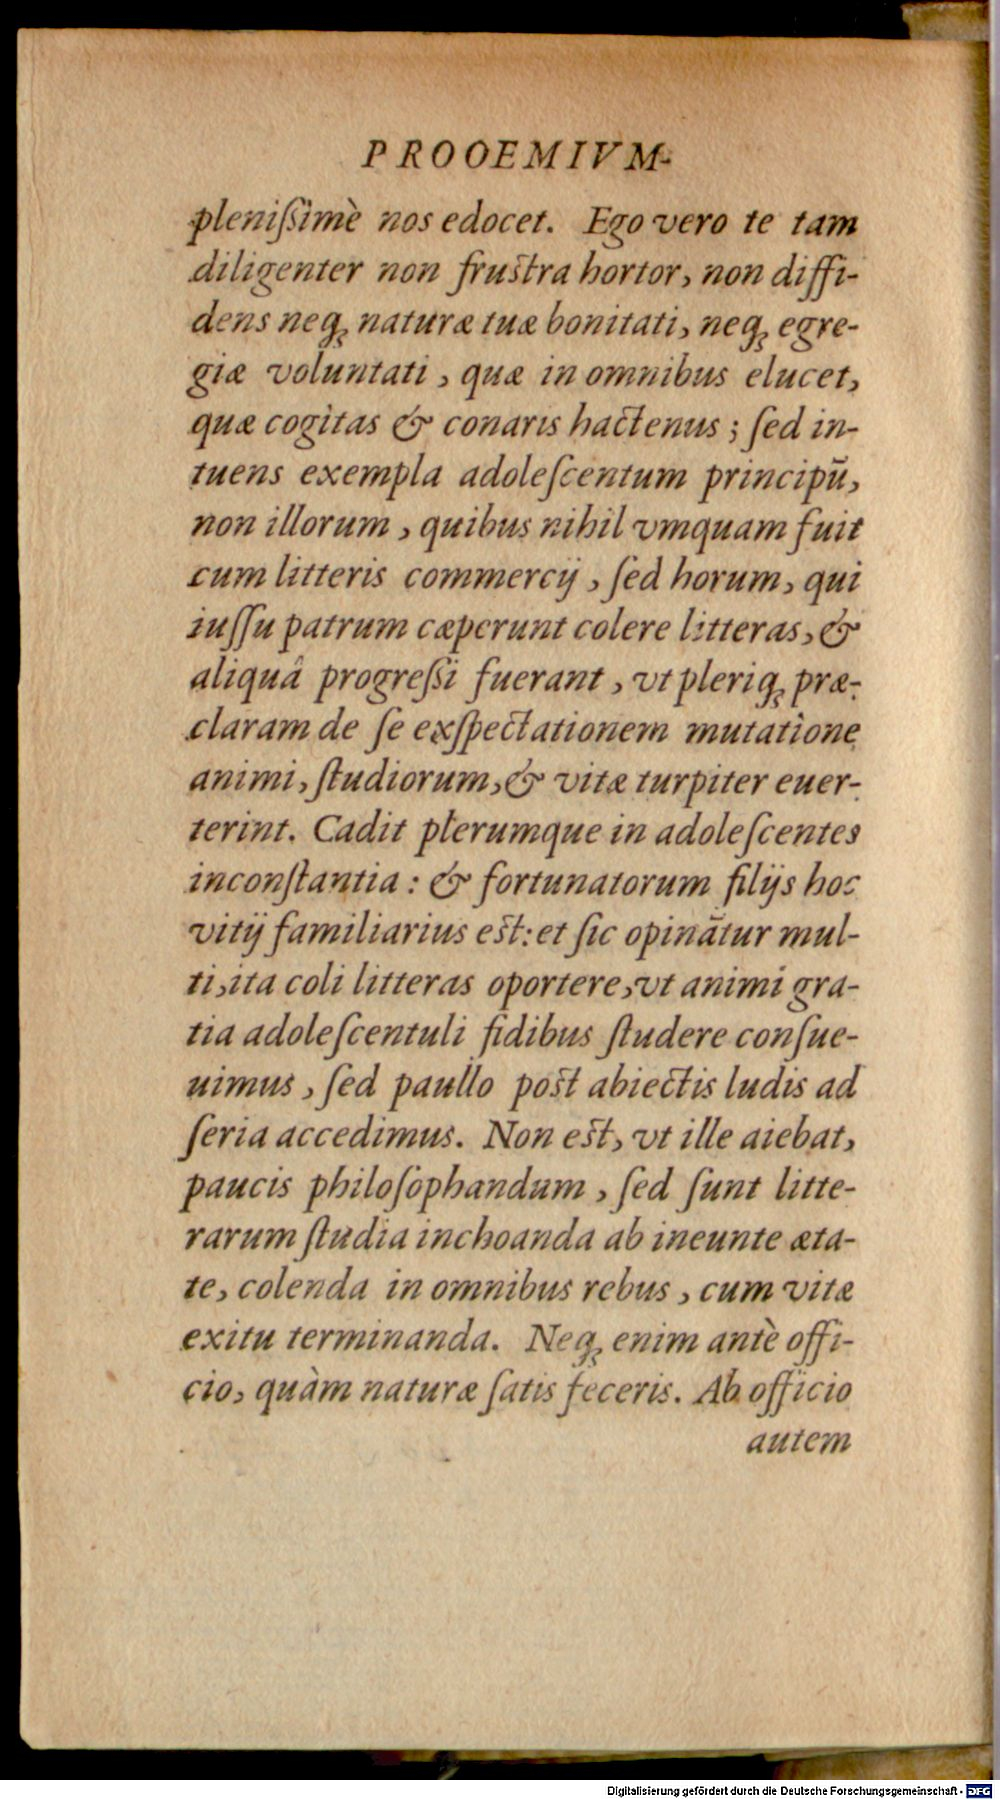 PROOEMIVM.
pleniſsimè nos edocet. Ego vero te tam
diligenter non fruſtra hortor, non diffi-
dens neq; naturæ tuæ bonitati, neq; egre-
giæ voluntati, quæ in omnibus elucet,
quæ cogitas & conaris hactenus; ſed in-
tuens exempla adoleſcentum principũ,
non illorum, quibus nihil vmquam fuit
cum litteris commercij, ſed horum, qui
iuſſu patrum cæperunt colere litteras, &
aliquâ progreſsi fuerant, vt pleriq; præ-
claram de ſe exſpectationem mutatione
animi, ſtudiorum, & vitæ turpiter euer-
terint. Cadit plerumque in adoleſcentes
inconſtantia: & fortunatorum filijs hoc
vitij familiarius eſt: et ſic opinãtur mul-
ti, ita coli litteras oportere, vt animi gra-
tia adoleſcentuli fidibus ſtudere conſue-
uimus, ſed paullo poſt abiectis ludis ad
ſeria accedimus. Non eſt, vt ille aiebat,
paucis philoſophandum, ſed ſunt litte-
rarum ſtudia inchoanda ab ineunte æta-
te, colenda in omnibus rebus, cum vitæ
exitu terminanda. Neq; enim antè offi-
cio, quàm naturæ ſatis feceris. Ab officio
autem
Digitalisierung gefördert durch die Deutsche Forschungsgemeinschaft - DFG